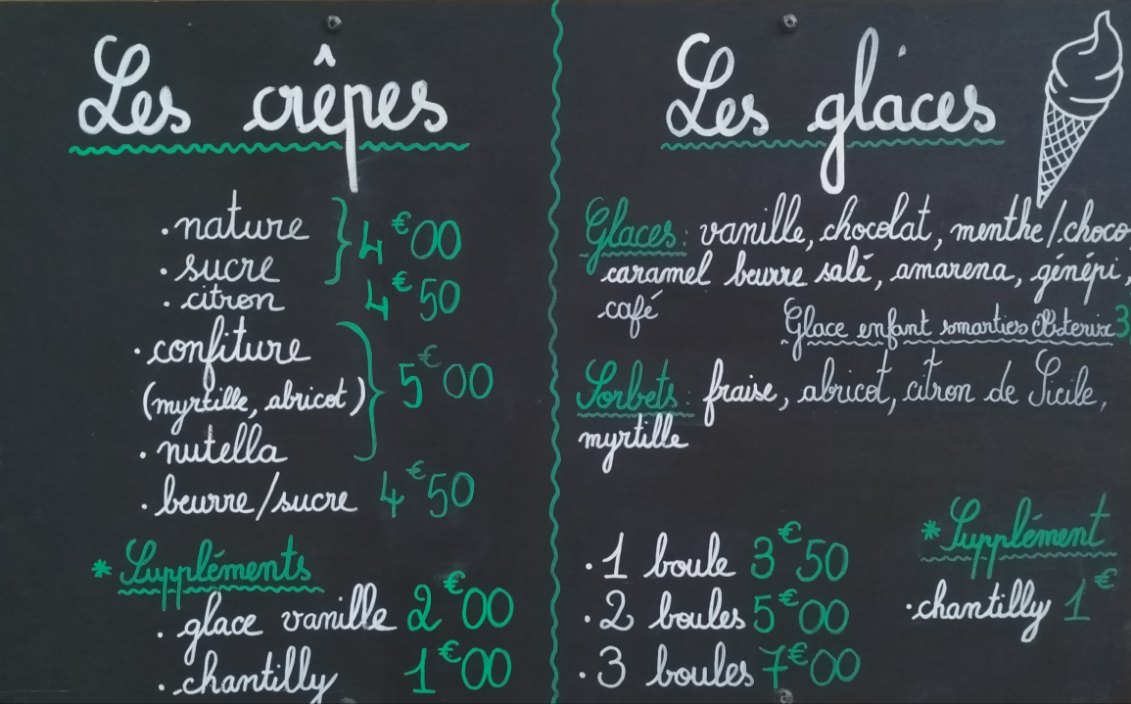 Les crêpes
. nature
. sucre
4€00
. citron 4€50
. confiture
(myrtille, abricot)
. nutella
5€00
. beurre/sucre 4€50
* Suppléments
. glace vanille 2€00
. chantilly 1€00
Les glaces
Glaces : vanille, chocolat, menthe/choco
caramel beurre salé, amarena, génépi,
café
Glace enfant smarties Asterix 3
Sorbets : fraise, abricot, citron de Sicile,
myrtille
. 1 boule 3€50
. 2 boules 5€00
. 3 boules 7€00
* Supplément
. chantilly 1€